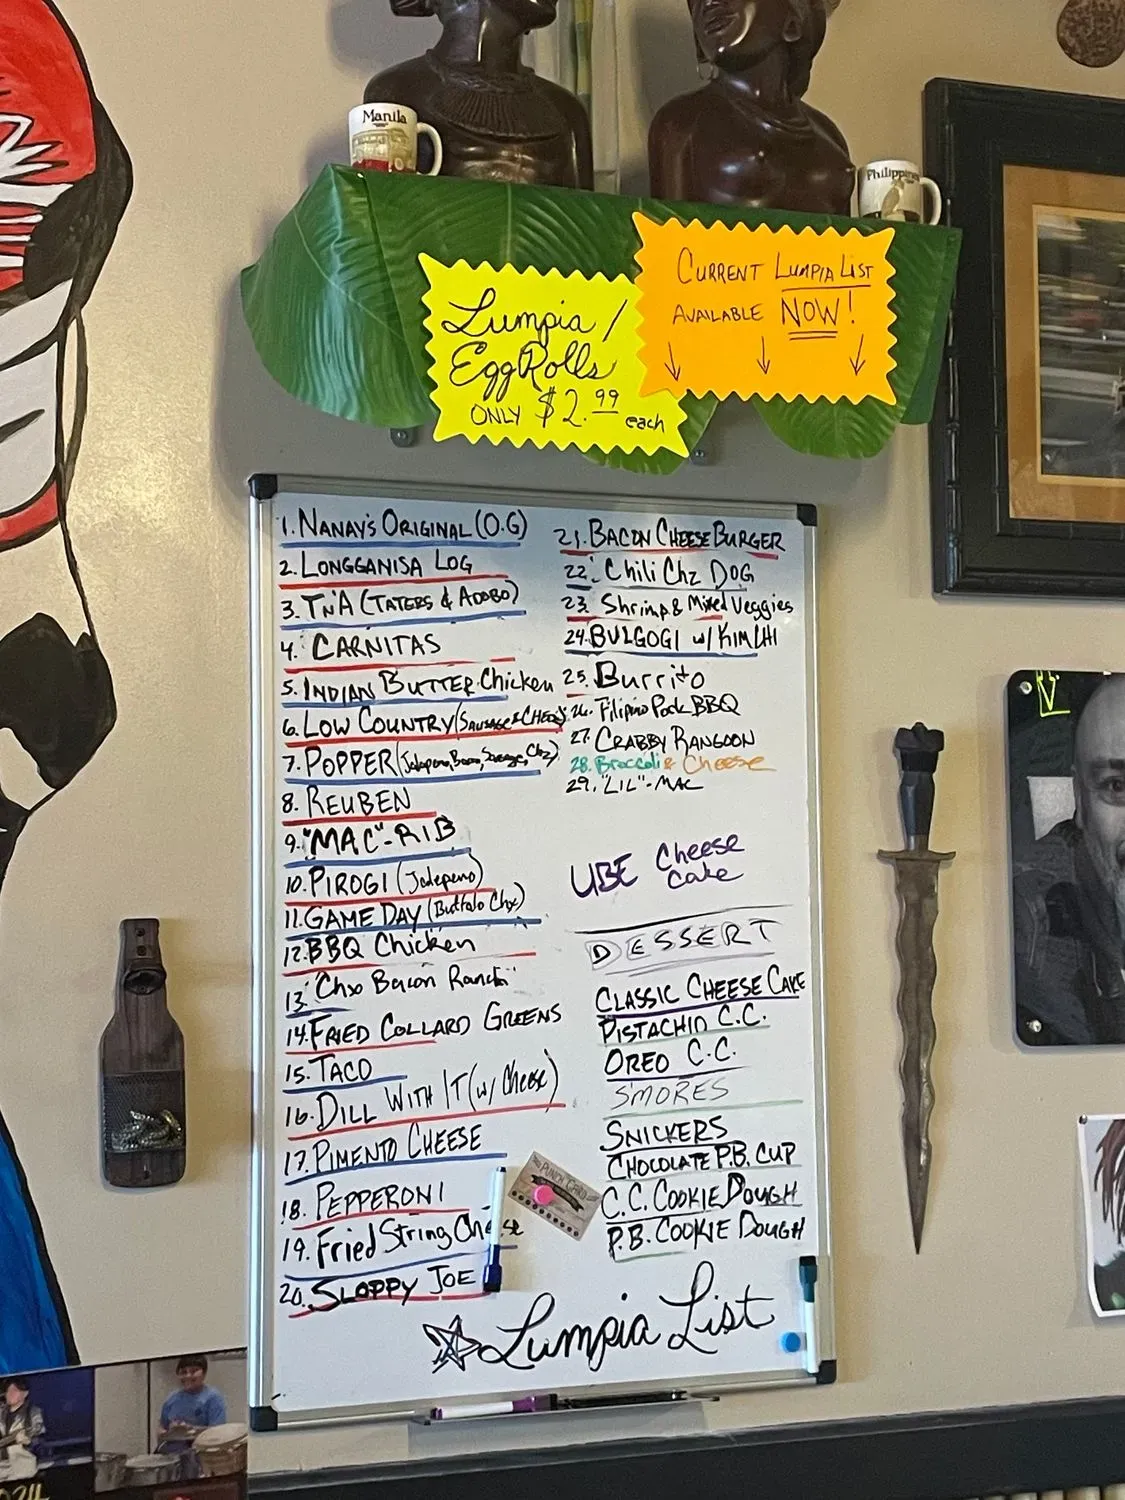 Manila
Philippines
Lumpia /
EggRolls
ONLY $2.99 each
CURRENT LUMPIA LIST
AVAILABLE NOW!
1. NANAY'S ORIGINAL (O.G)
2. LONGGANISA LOG
3. TNA (TATERS & ADOBO)
4. CARNITAS
5. INDIAN BUTTER Chicken
6. LOW COUNTRY (SAUSAGE & CHEDZ)
7. POPPER (Jalapeno, Bacon, Sausage, Chz)
8. REUBEN
9. "MAC"-RIB
10. PIROGI (Jalepeno)
11. GAME DAY (Buffalo Chx)
12. BBQ Chicken
13. "Chx Bacon Ranch"
14. FRIED COLLARD GREENS
15. TACO
16. DILL WITH IT (w/ Cheese)
17. PIMENTO CHEESE
18. PEPPERONI
19. Fried String Cheese
20. SLOPPY JOE
21. BACON CHEESE BURGER
22. Chili Chz DOG
23. Shrimp & Mixed Veggies
24. BULGOGI w/ KIMCHI
25. Burrito
26. Filipino Pork BBQ
27. CRABBY RANGOON
28. Broccoli & Cheese
29. "LIL"-MAC
UBE Cheese
Cake
DESSERT
CLASSIC CHEESE CAKE
PISTACHIO C.C.
OREO C.C.
S'MORES
SNICKERS
CHOCOLATE P.B. CUP
C.C. COOKIE DOUGH
P.B. COOKIE DOUGH
PUNCH CARD
Lumpia List